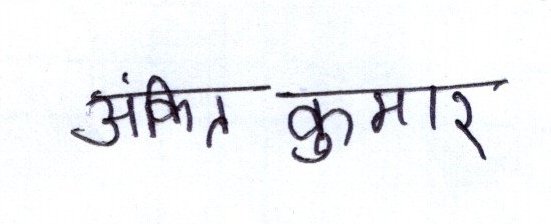 अंकित कुमार